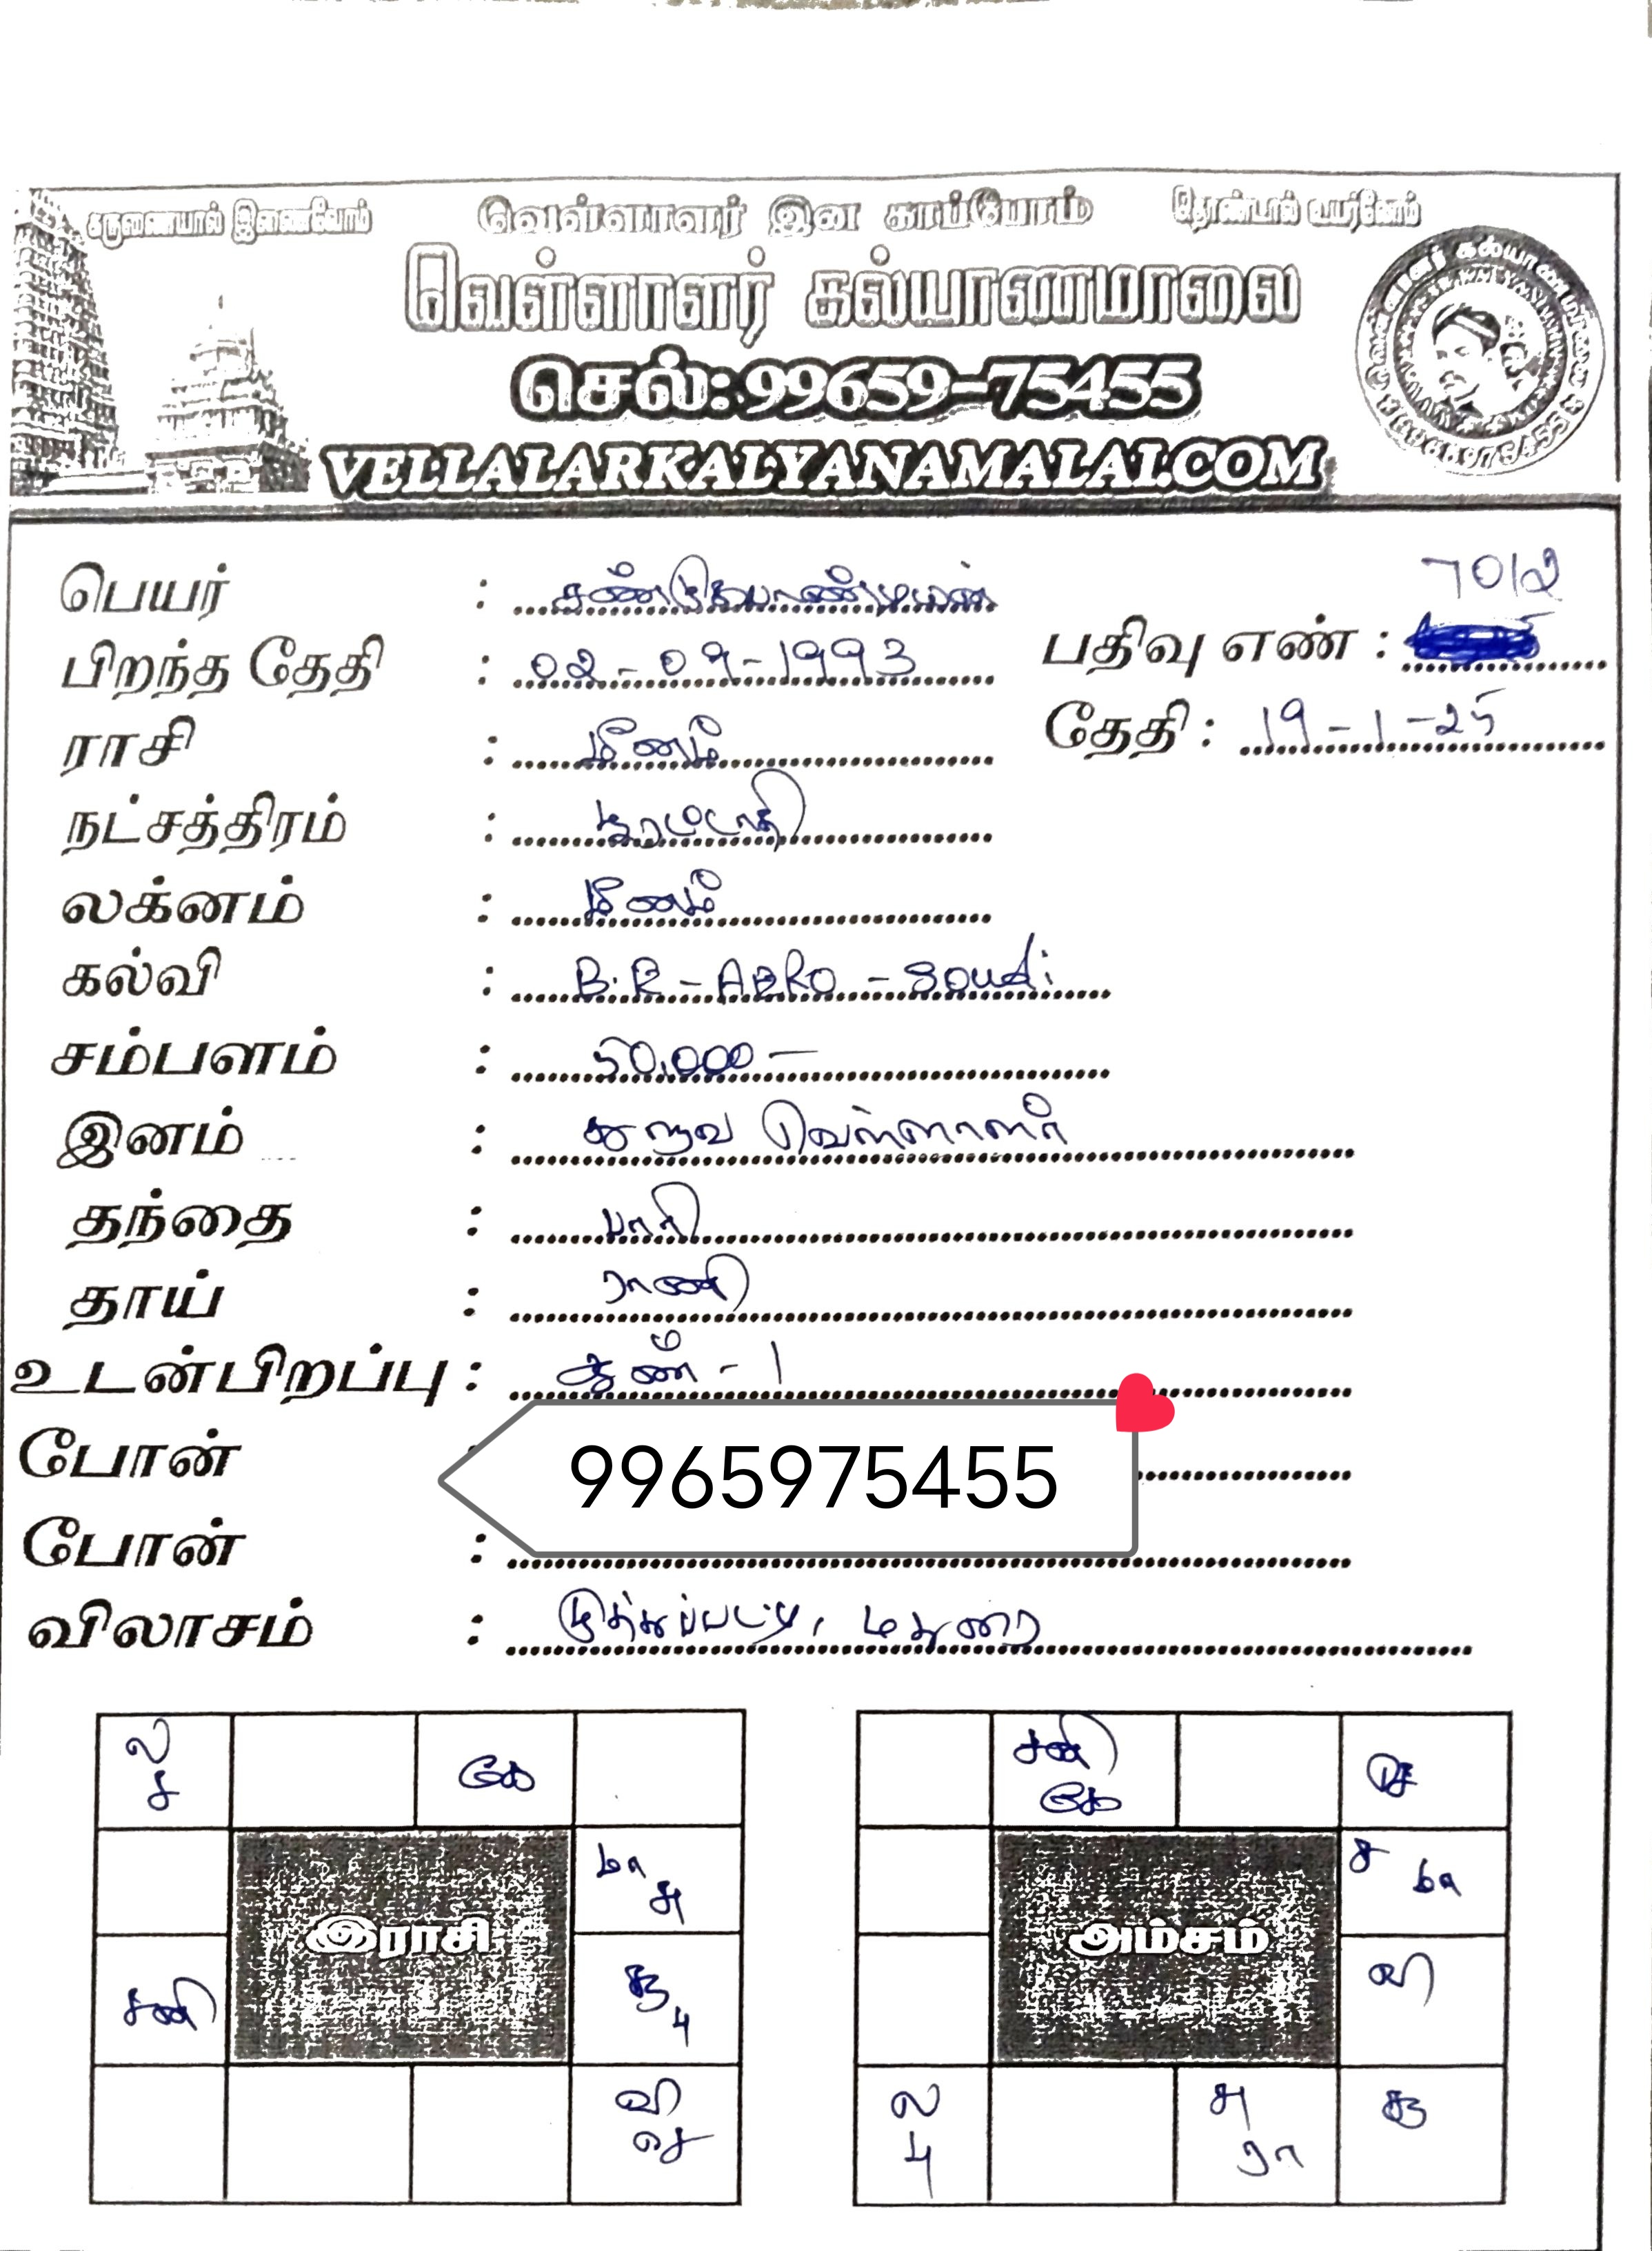 கருணையால் இணைவோம் வெள்ளாளர் இன காப்போம் தொண்டால் உயர்வோம்
வெள்ளாளர் கல்யாணமாலை
செல்: 99659-75455
VELLALARKALYANAMALAI.COM
பெயர் :
7012
பிறந்த தேதி : 02-09-1993 பதிவு எண் :
ராசி : மீனம் தேதி : 19-1-25
நட்சத்திரம் : பூரட்டாதி
லக்னம் : மீனம்
கல்வி : B.E - AERO - Soudi
சம்பளம் : 50,000 —
இனம் : வெள்ளாளர்
தந்தை : பாரி
தாய் : ராணி
உடன்பிறப்பு : ஆண் - 1
போன் 9965975455
போன் :
விலாசம் : முத்துப்பட்டி, மதுரை
ல கே சனி செ
ச கே
மா சு ச மா
இராசி அம்சம்
சனி சு பு வி
வி ல சு சு
செ பு ரா